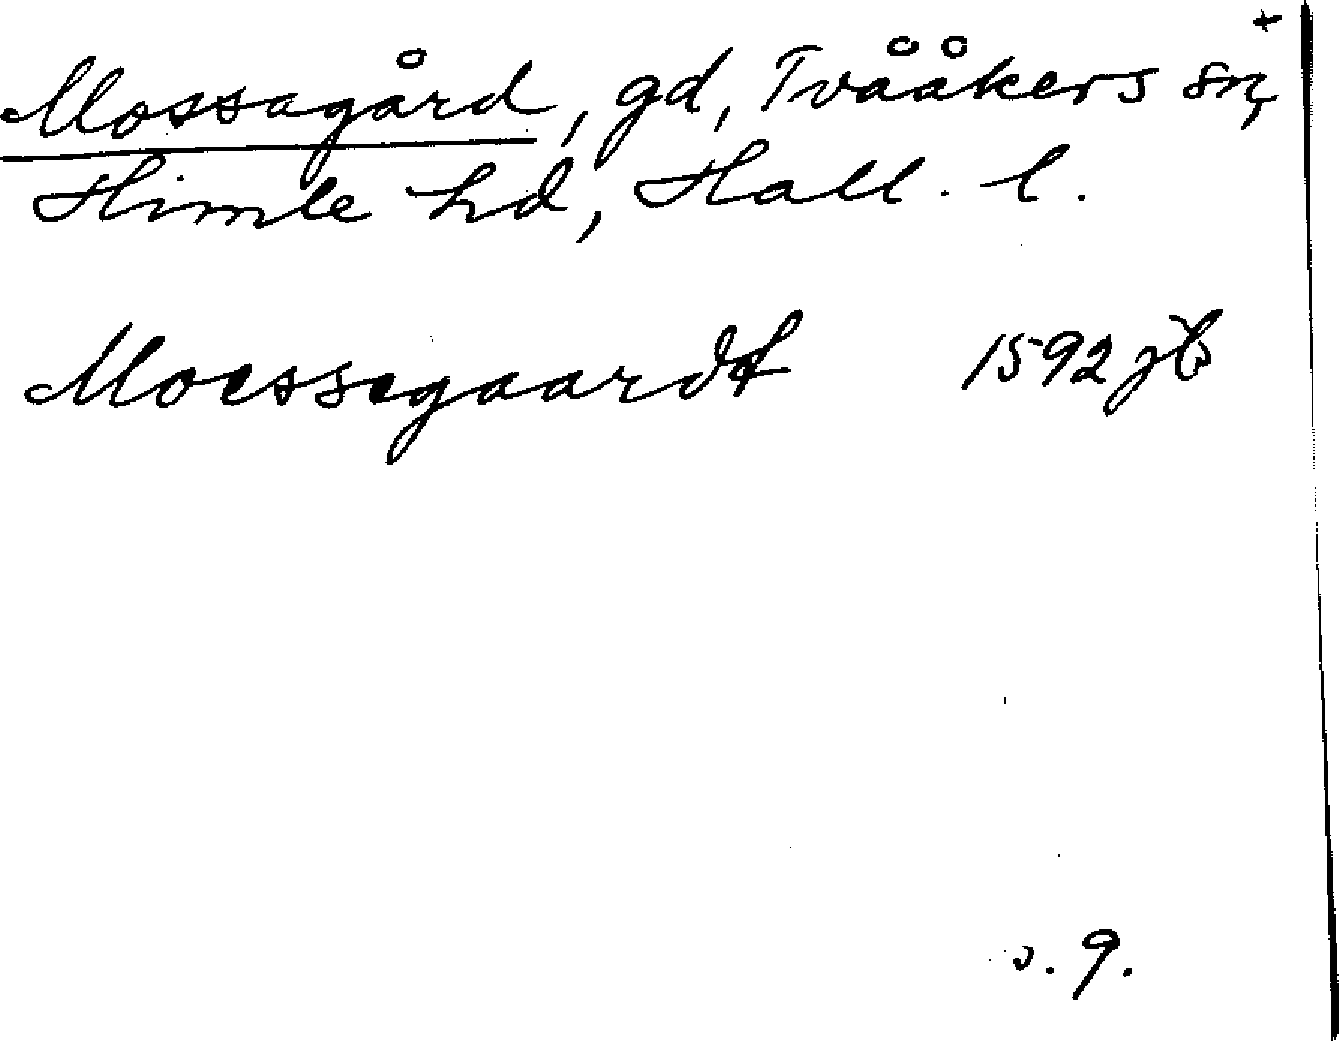 +
Mossagård, gd, Tvååkers sn,
Himle hd, Hall. l.
Moessegaardt 1592 jb
v. 9.